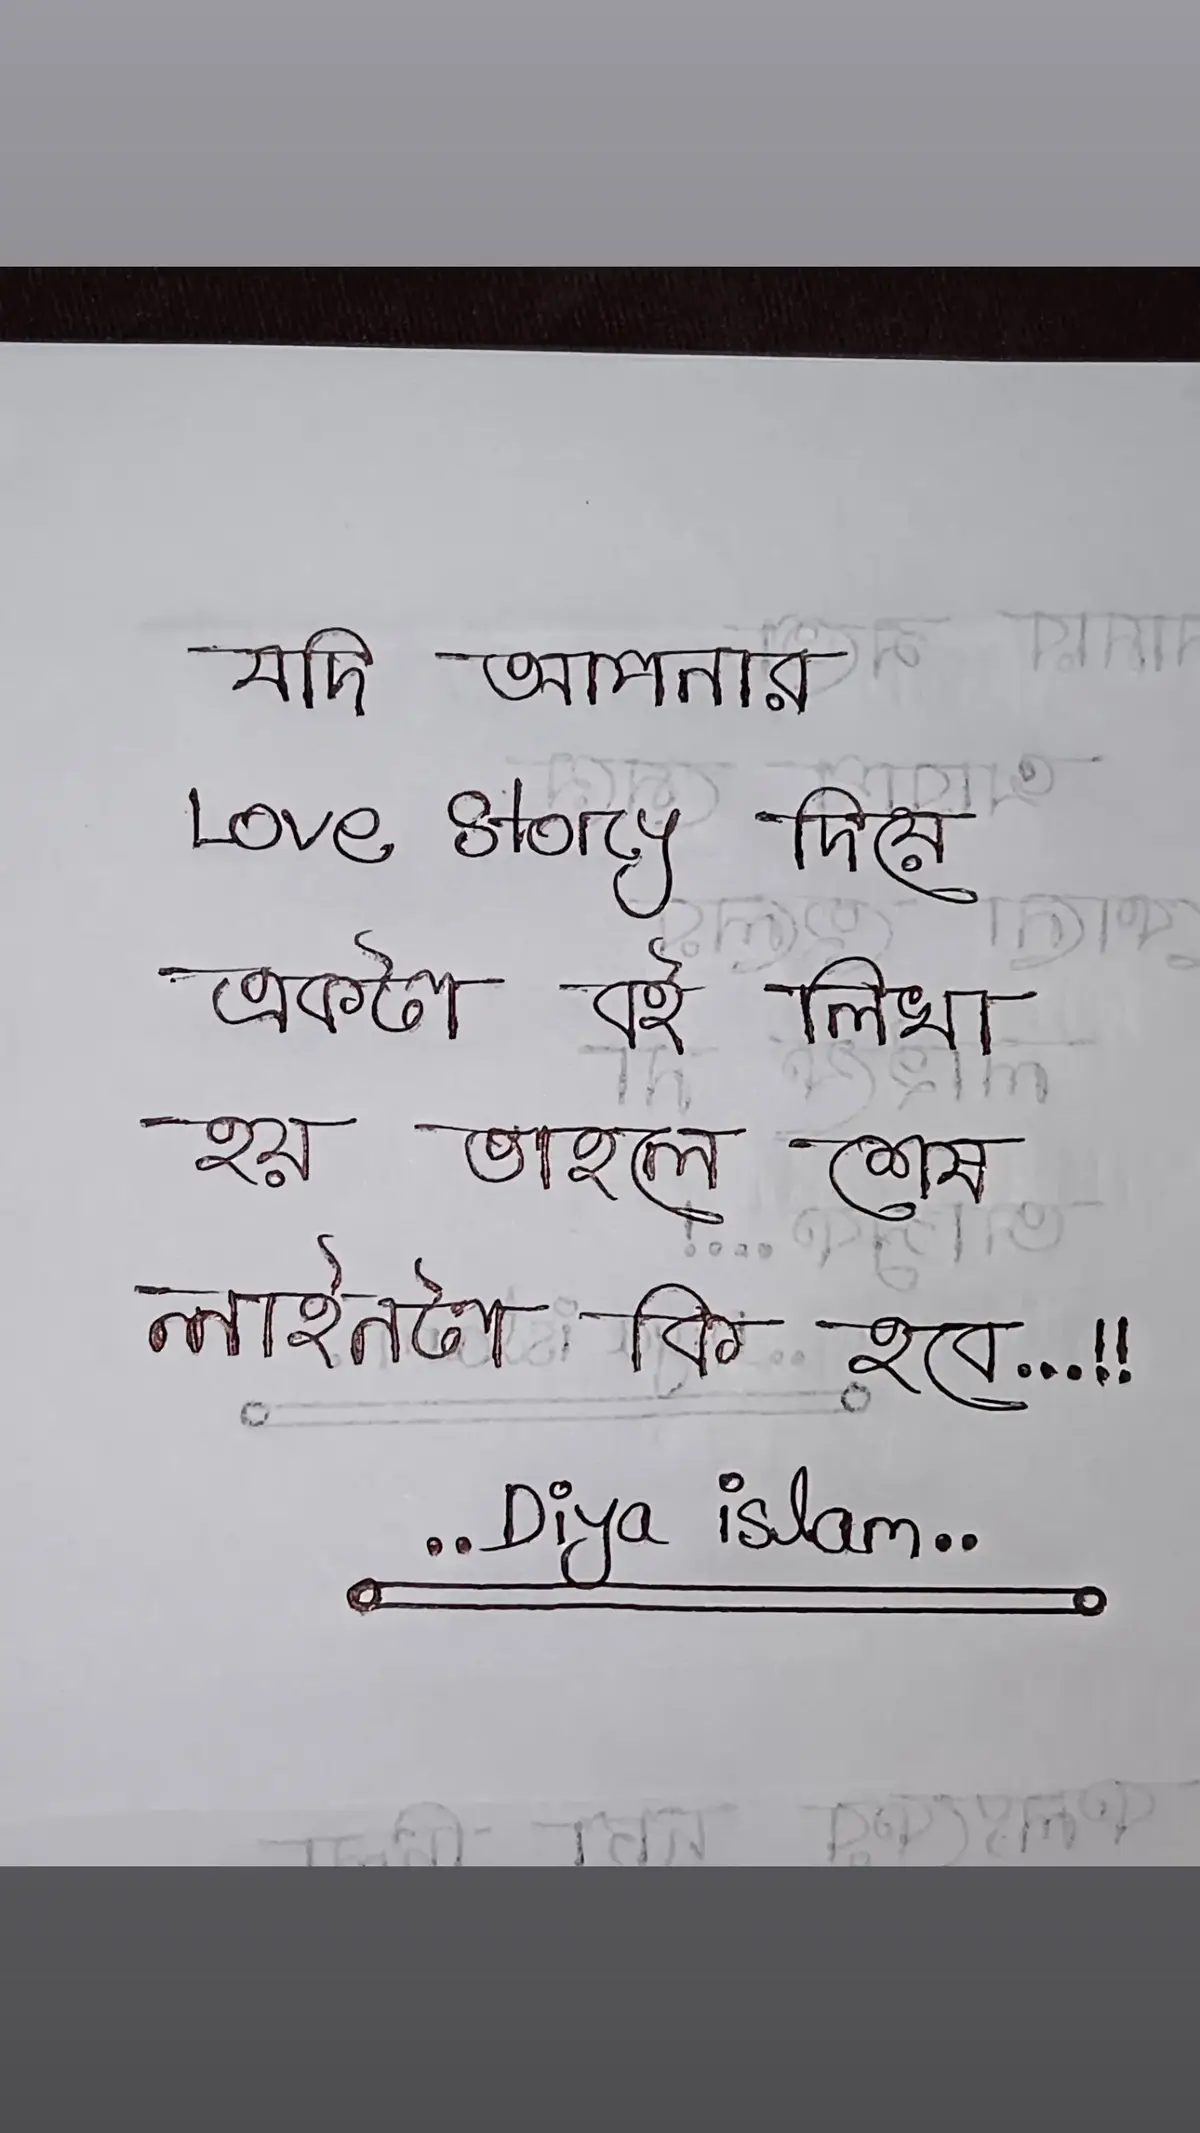 যদি আপনার
Love Story দিয়ে
একটা বই লিখা
হয় তাহলে শেষ
লাইনটা কি হবে...!!
..Diya islam..